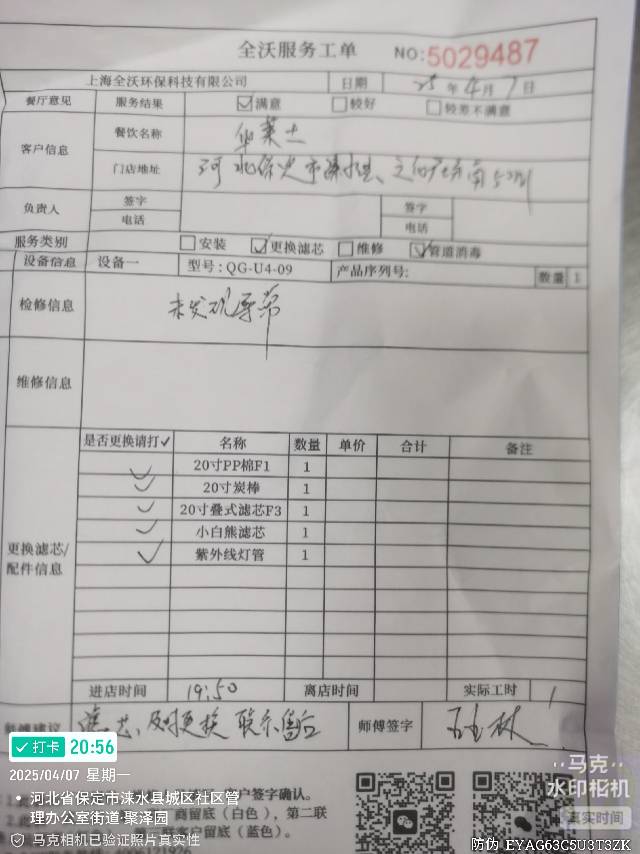 全沃服务工单 NO:5029487
上海全沃环保科技有限公司 日期 25年4月7日
餐厅意见 服务结果 ☑满意 □较好 □较差不满意
客户信息 餐饮名称 华莱士
门店地址 河北保定市涞水县
负责人 签字 签字
电话 电话
服务类别 □安装 ☑更换滤芯 □维修 ☑管道消毒
设备信息 设备一 型号:QG-U4-09 产品序列号: 数量 1
检修信息 未发现异常
维修信息
更换滤芯/配件信息 是否更换请打✓ 名称 数量 单价 合计 备注
✓ 20寸PP棉F1 1
✓ 20寸炭棒 1
✓ 20寸叠式滤芯F3 1
✓ 小白熊滤芯 1
✓ 紫外线灯管 1
进店时间 19:50 离店时间 实际工时 1
建议 滤芯及时更换 联系售后 师傅签字
✓打卡 20:56
2025/04/07 星期一
河北省保定市涞水县城区社区管
理办公室街道·聚泽园
马克相机已验证照片真实性
客户签字确认。
商留底(白色),第二联
留底(蓝色)。
马克
水印相机
真实时间
防伪 EYAG63C5U3T3ZK